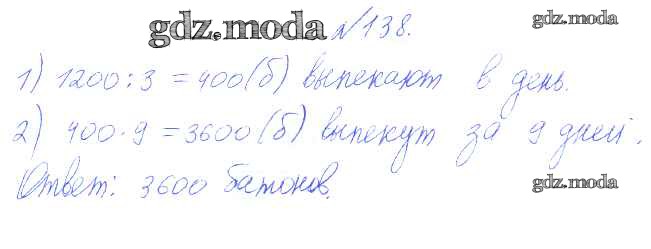 gdz.moda №138. gdz.moda
1) 1200 : 3 = 400 (б) выпекают в день.
2) 400 · 9 = 3600 (б) выпекут за 9 дней.
Ответ: 3600 батонов. gdz.moda